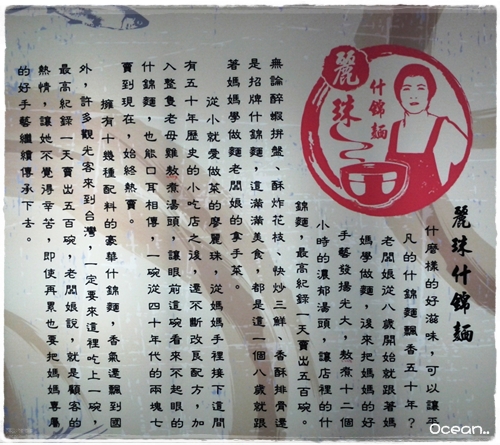 麗珠
什錦麵
麗珠什錦麵
什麼樣的好滋味，可以讓平
凡的什錦麵飄香五十年？
老闆娘從八歲開始就跟著媽
媽學做麵，後來把媽媽的好
手藝發揚光大，熬煮十二個
小時的濃郁湯頭，讓店裡的什
錦麵，最高紀錄一天賣出五百碗。
無論醉蝦拼盤、酥炸花枝、快炒三鮮、香酥排骨還
是招牌什錦麵，這滿滿美食，都是這一個八歲就跟
著媽媽學做麵老闆娘的拿手菜。
從小就愛做菜的廖麗珠，從媽媽手裡接下這間
有五十年歷史的小吃店之後，還不斷改良配方，加
入整隻老母雞熬煮湯頭，讓眼前這碗看來不起眼的
什錦麵，也能口耳相傳，一碗從四十年代的兩塊七
賣到現在，始終熱賣。
擁有十幾種配料的豪華什錦麵，香氣還飄到國
外，許多觀光客來到台灣，一定要來這裡吃上一碗，
最高紀錄一天賣出五百碗，老闆娘說，就是顧客的
熱情，讓她不覺得辛苦，即使再累也要把媽媽專屬
的好手藝繼續傳承下去。
Ocean..